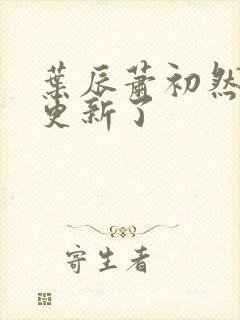 葉辰蕭初然
更新了
寄生者